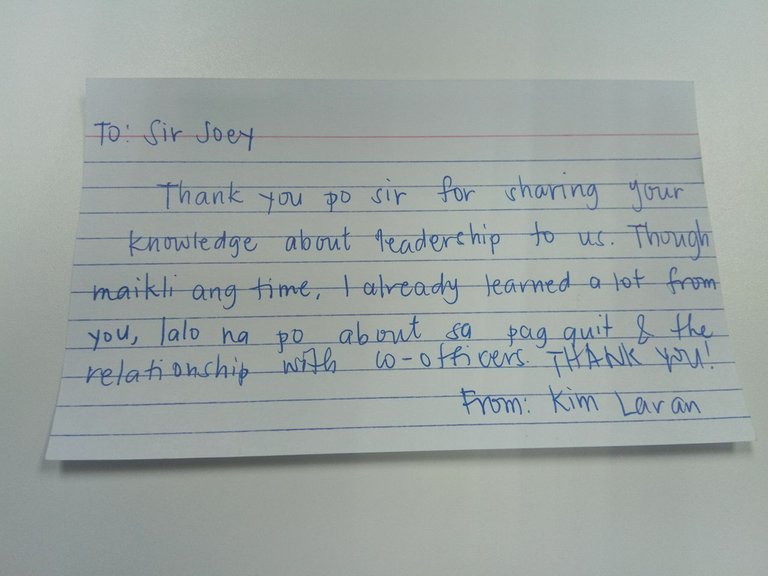 To: Sir Joey
Thank you po sir for sharing your
knowledge about leadership to us. Though
maikli ang time, I already learned a lot from
you, lalo na po about sa pag quit & the
relationship with co-officers. THANK YOU!
From: Kim Laran